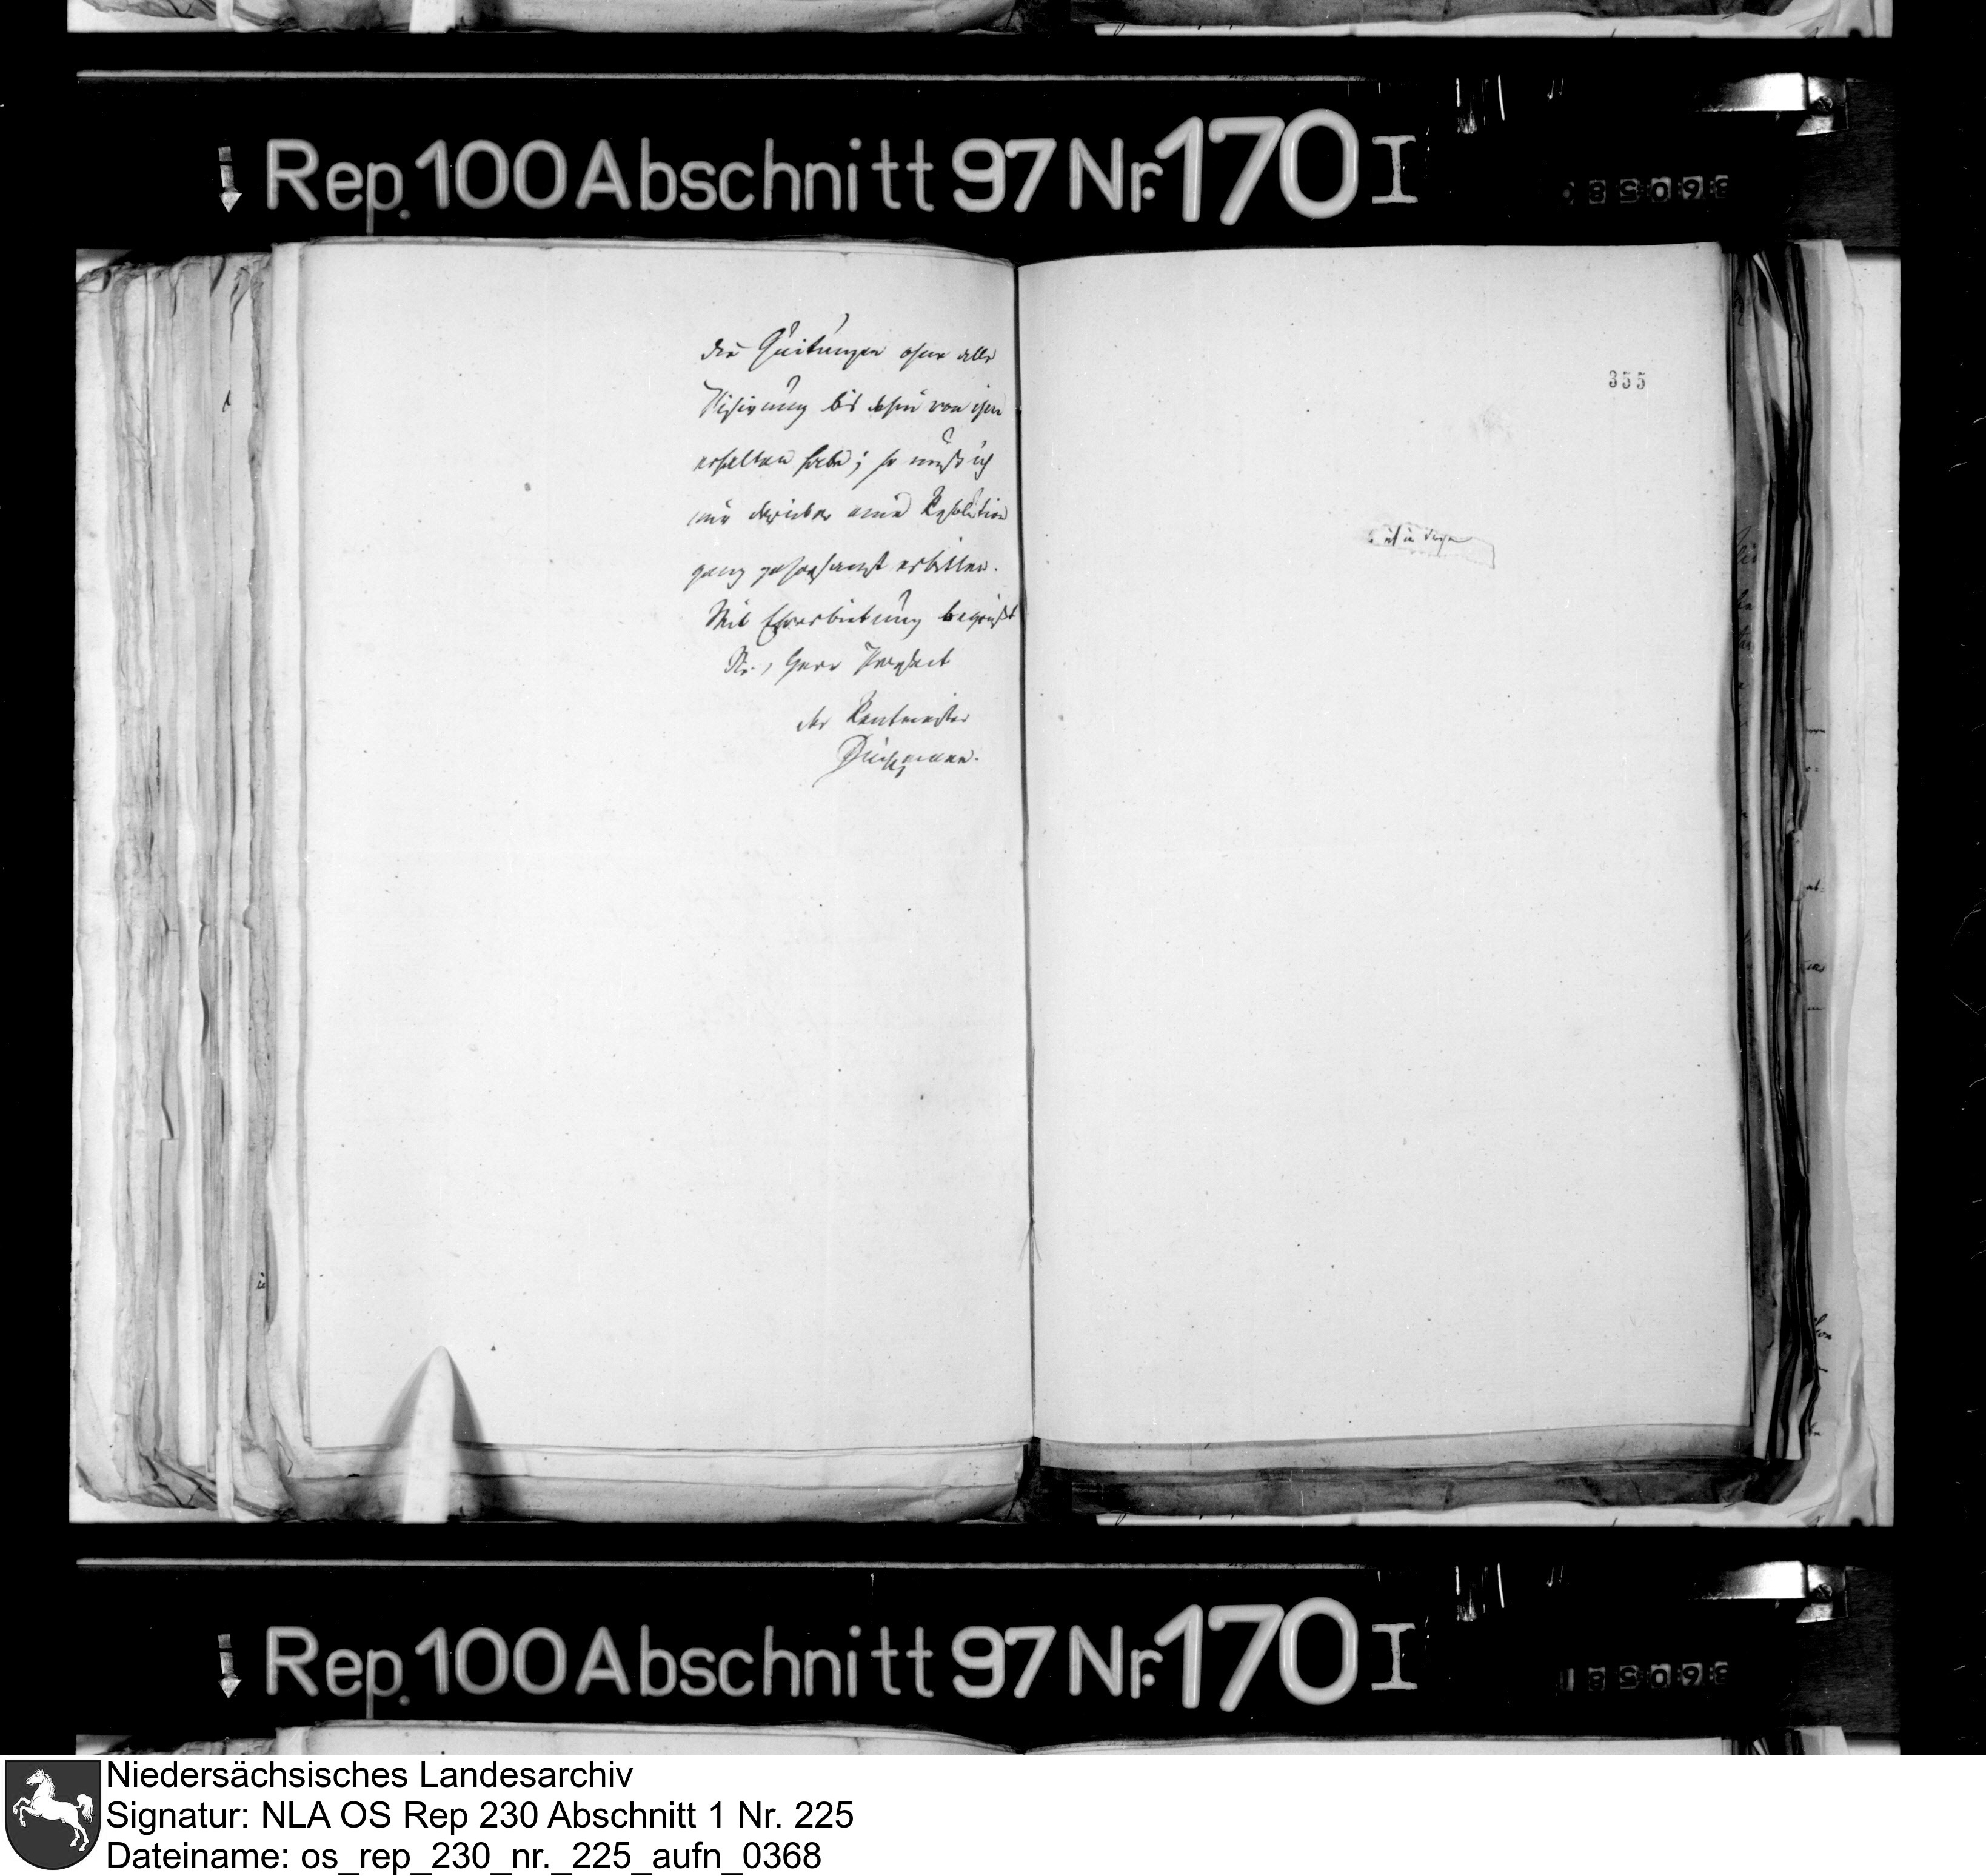 Rep. 100 Abschnitt 97 Nr. 170 I
die Quitungen ohne alle
Visirung bis dahin von ihm
erhalten habe; so muß ich
mir darüber eine Resolution
ganz gehorsamst erbitten.
Mit Ehrerbietung begrüßt
der Rentmeister
355
Rep. 100 Abschnitt 97 Nr. 170 I
Niedersächsisches Landesarchiv
Signatur: NLA OS Rep 230 Abschnitt 1 Nr. 225
Dateiname: os_rep_230_nr._225_aufn_0368